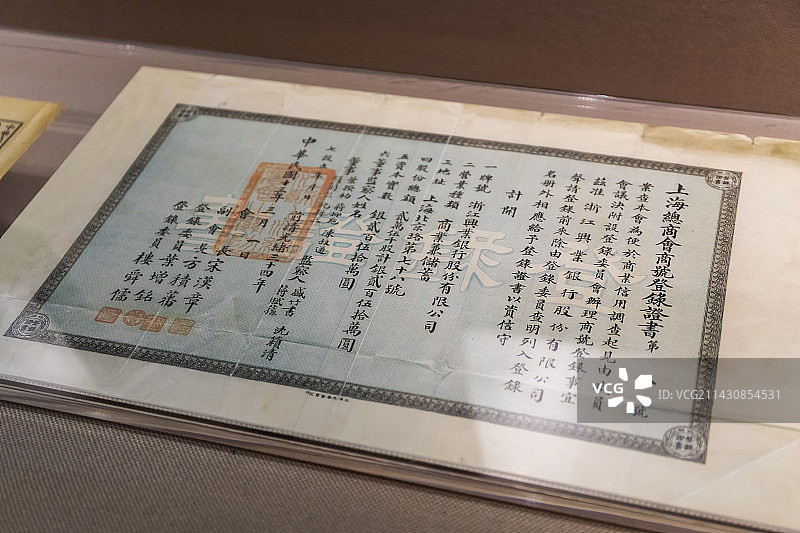 上海總商會商號登錄證書第 號
業查本會為便於商業信用調查起見由
會議決附設登錄委員會辦理商號登錄事宜
茲准浙江興業銀行股份有限公司 員
聲請登錄前來除由登錄委員查明列入登錄
名册外相應給予登錄證書以資信守
計開
一牌號 浙江興業銀行股份有限公司
二營業種類 商業兼儲蓄
三地址 上海北京路第七十八號
四股份總額 貳萬伍千股計銀貳百伍拾萬圓
五資本實數 銀貳百伍拾萬圓
六董事監察人姓名
董事葉揆初
監察人
沈籟清
七設立年月 前清光緒三十四年
中華民國十 年三月一日
會長宋漢章
副會長方積蕃
登錄委員葉增銘
登錄委員樓舜儒
VCG
VCG211430854531